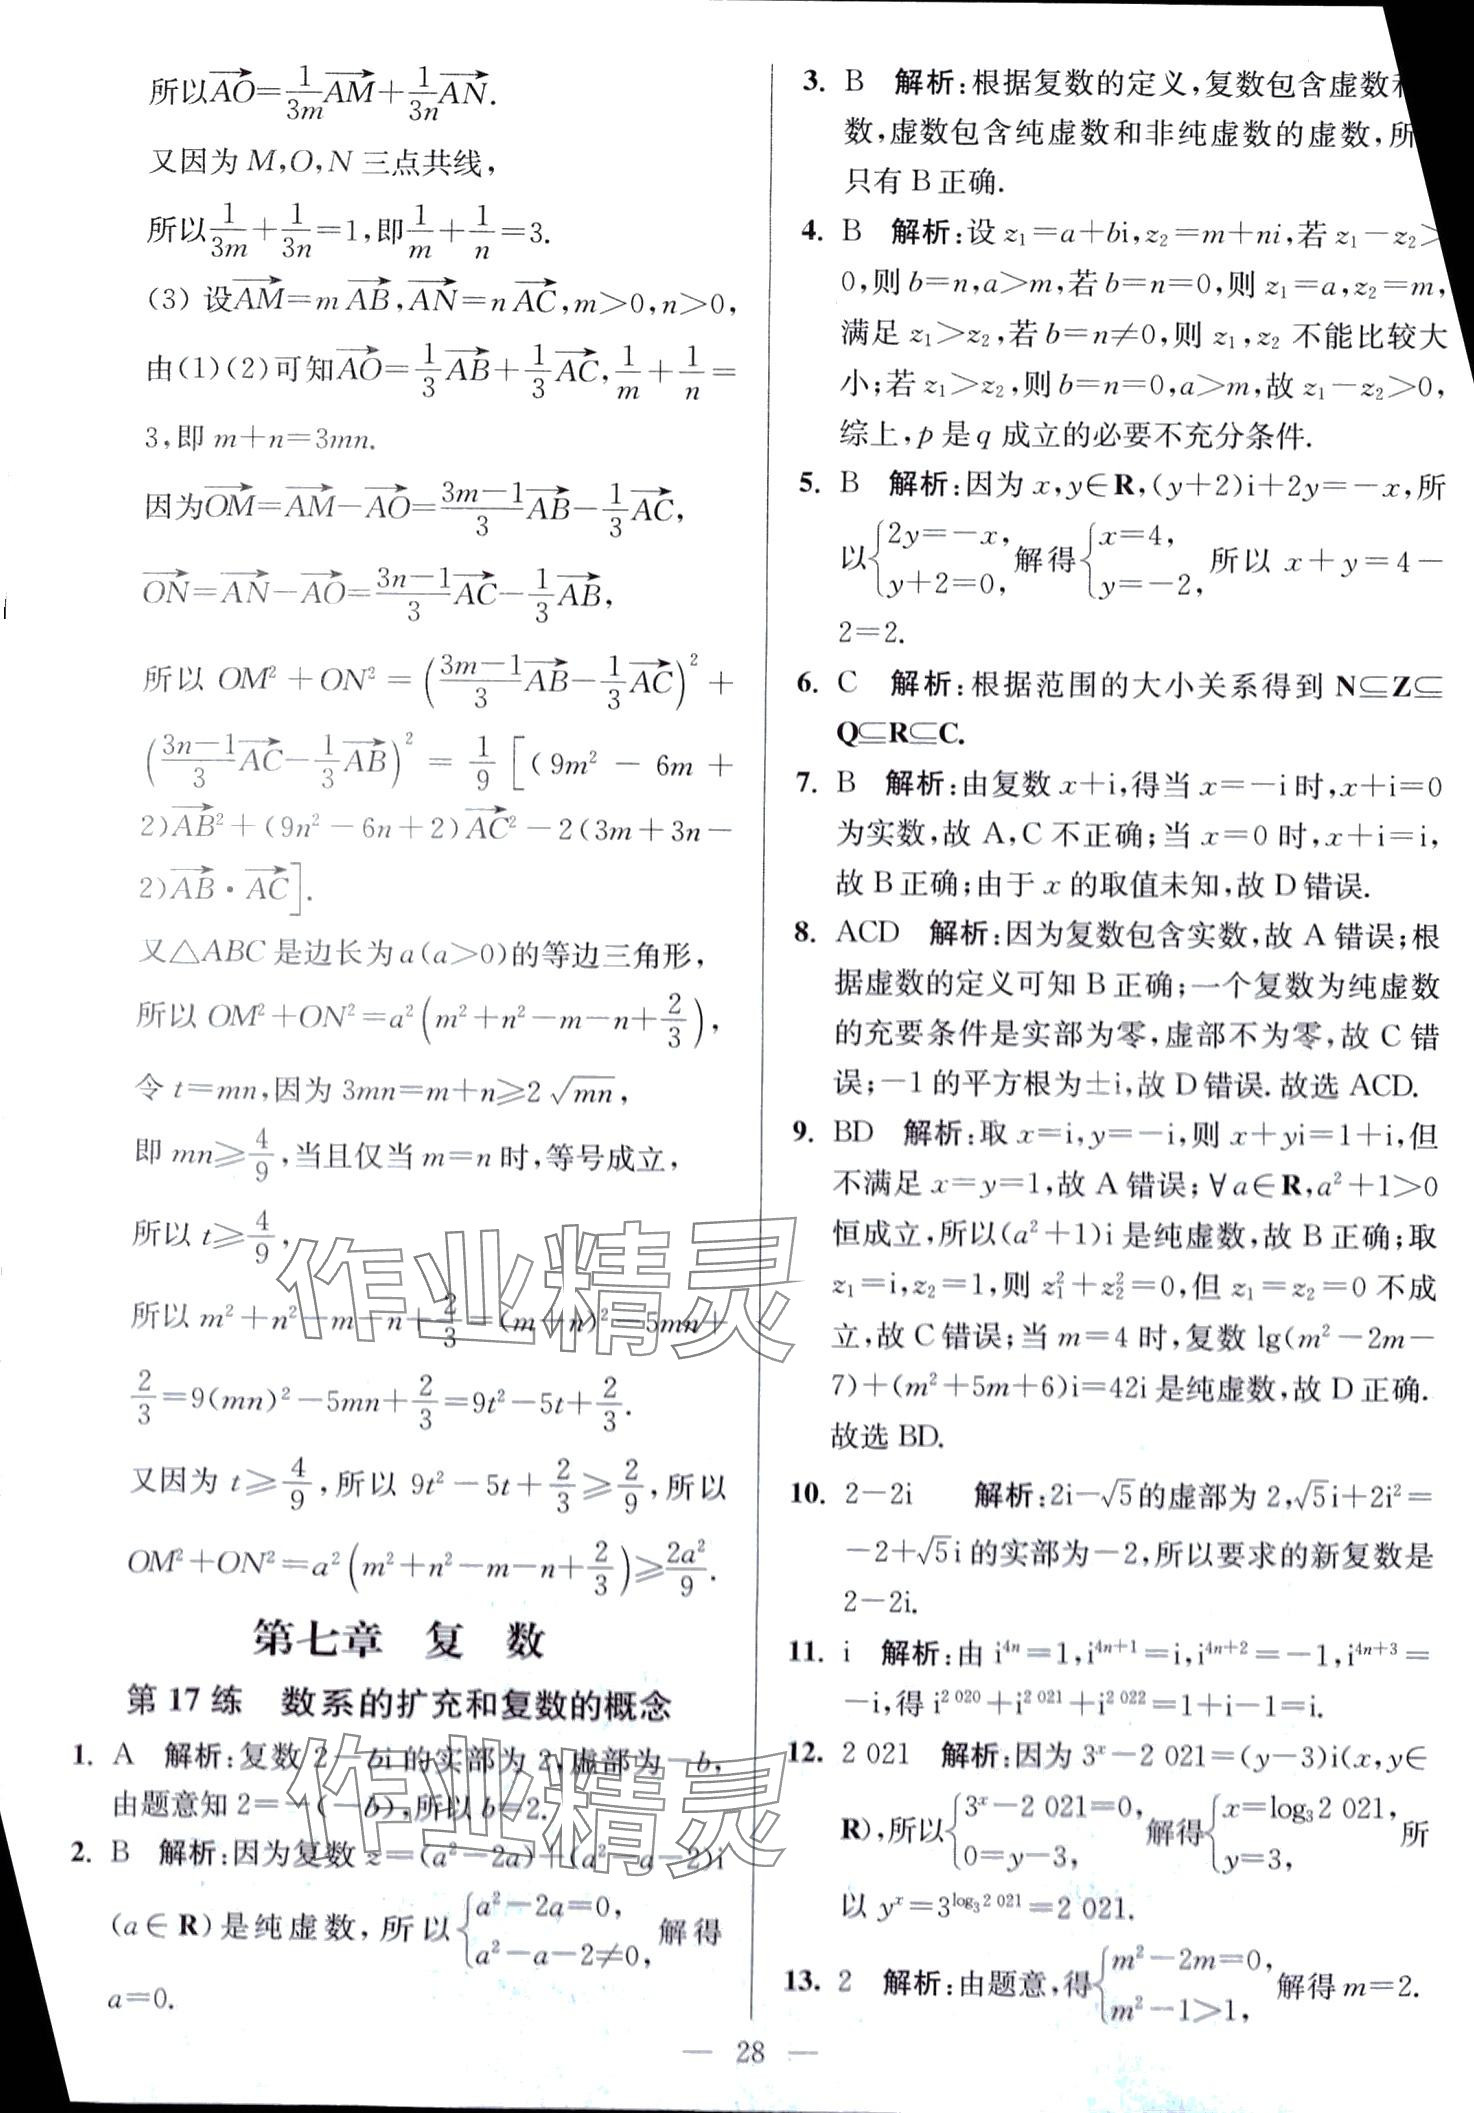 所以$\overrightarrow{AO}=\frac{1}{3m}\overrightarrow{AM}+\frac{1}{3n}\overrightarrow{AN}$.
又因为 M,O,N 三点共线,
所以$\frac{1}{3m}+\frac{1}{3n}=1$,即$\frac{1}{m}+\frac{1}{n}=3$.
(3) 设$\overrightarrow{AM}=m\overrightarrow{AB}$,$\overrightarrow{AN}=n\overrightarrow{AC}$,m>0,n>0,
由(1)(2)可知$\overrightarrow{AO}=\frac{1}{3}\overrightarrow{AB}+\frac{1}{3}\overrightarrow{AC}$,$\frac{1}{m}+\frac{1}{n}=$
3,即 m+n=3mn.
因为$\overrightarrow{OM}=\overrightarrow{AM}-\overrightarrow{AO}=\frac{3m-1}{3}\overrightarrow{AB}-\frac{1}{3}\overrightarrow{AC}$,
$\overrightarrow{ON}=\overrightarrow{AN}-\overrightarrow{AO}=\frac{3n-1}{3}\overrightarrow{AC}-\frac{1}{3}\overrightarrow{AB}$,
所以 $OM^2+ON^2=\left(\frac{3m-1}{3}\overrightarrow{AB}-\frac{1}{3}\overrightarrow{AC}\right)^2+$
$\left(\frac{3n-1}{3}\overrightarrow{AC}-\frac{1}{3}\overrightarrow{AB}\right)^2=\frac{1}{9}[(9m^2-6m+$
$2)\overrightarrow{AB}^2+(9n^2-6n+2)\overrightarrow{AC}^2-2(3m+3n-$
$2)\overrightarrow{AB}\cdot\overrightarrow{AC}]$.
又△ABC 是边长为 a(a>0)的等边三角形,
所以 $OM^2+ON^2=a^2\left(m^2+n^2-m-n+\frac{2}{3}\right)$,
令 t=mn,因为 $3mn=m+n≥2\sqrt{mn}$,
即 $mn≥\frac{4}{9}$,当且仅当 m=n 时,等号成立,
所以 $t≥\frac{4}{9}$,
所以 $m^2+n^2-m-n+\frac{2}{3}=(m+n)^2-5mn+$
$\frac{2}{3}=9(mn)^2-5mn+\frac{2}{3}=9t^2-5t+\frac{2}{3}$.
又因为 $t≥\frac{4}{9}$,所以 $9t^2-5t+\frac{2}{3}≥\frac{2}{9}$,所以
$OM^2+ON^2=a^2\left(m^2+n^2-m-n+\frac{2}{3}\right)≥\frac{2a^2}{9}$.
第七章 复 数
第 17 练 数系的扩充和复数的概念
1. A 解析:复数 2-bi 的实部为 2,虚部为-b,
由题意知 2=-(-b),所以 b=2.
2. B 解析:因为复数 $z=(a^2-2a)+(a^2-a-2)i$
(a∈R)是纯虚数,所以$\begin{cases}a^2-2a=0,\\a^2-a-2≠0,\end{cases}$解得
a=0.
3. B 解析:根据复数的定义,复数包含虚数和
数,虚数包含纯虚数和非纯虚数的虚数,所
只有 B 正确.
4. B 解析:设 $z_1=a+bi,z_2=m+ni$,若 $z_1-z_2>$
0,则 b=n,a>m,若 b=n=0,则 $z_1=a,z_2=m$,
满足 $z_1>z_2$,若 b=n≠0,则 $z_1,z_2$ 不能比较大
小;若 $z_1>z_2$,则 b=n=0,a>m,故 $z_1-z_2>0$,
综上,p 是 q 成立的必要不充分条件.
5. B 解析:因为 x,y∈R,(y+2)i+2y=-x,所
以$\begin{cases}2y=-x,\\y+2=0,\end{cases}$解得$\begin{cases}x=4,\\y=-2,\end{cases}$所以 x+y=4-
2=2.
6. C 解析:根据范围的大小关系得到 N⊆Z⊆
Q⊆R⊆C.
7. B 解析:由复数 x+i,得当 x=-i 时,x+i=0
为实数,故 A,C 不正确;当 x=0 时,x+i=i,
故 B 正确;由于 x 的取值未知,故 D 错误.
8. ACD 解析:因为复数包含实数,故 A 错误;根
据虚数的定义可知 B 正确;一个复数为纯虚数
的充要条件是实部为零,虚部不为零,故 C 错
误;-1 的平方根为±i,故 D 错误.故选 ACD.
9. BD 解析:取 x=i,y=-i,则 x+yi=1+i,但
不满足 x=y=1,故 A 错误;∀a∈R,$a^2+1>0$
恒成立,所以$(a^2+1)i$ 是纯虚数,故 B 正确;取
$z_1=i,z_2=1$,则 $z_1^2+z_2^2=0$,但 $z_1=z_2=0$ 不成
立,故 C 错误;当 m=4 时,复数 $\lg(m^2-2m-$
$7)+(m^2+5m+6)i=42i$ 是纯虚数,故 D 正确.
故选 BD.
10. 2-2i 解析:$2i-\sqrt{5}$的虚部为 2,$\sqrt{5}i+2i^2=$
$-2+\sqrt{5}i$ 的实部为-2,所以要求的新复数是
2-2i.
11. i 解析:由 $i^{4n}=1,i^{4n+1}=i,i^{4n+2}=-1,i^{4n+3}=$
-i,得 $i^{2 020}+i^{2 021}+i^{2 022}=1+i-1=i$.
12. 2 021 解析:因为 $3^x-2 021=(y-3)i$(x,y∈
R),所以$\begin{cases}3^x-2 021=0,\\0=y-3,\end{cases}$解得$\begin{cases}x=\log_3 2 021,\\y=3,\end{cases}$所
以 $y^x=3^{\log_3 2 021}=2 021$.
13. 2 解析:由题意,得$\begin{cases}m^2-2m=0,\\m^2-1>1,\end{cases}$解得 m=2.
— 28 —
作业精灵
作业精灵